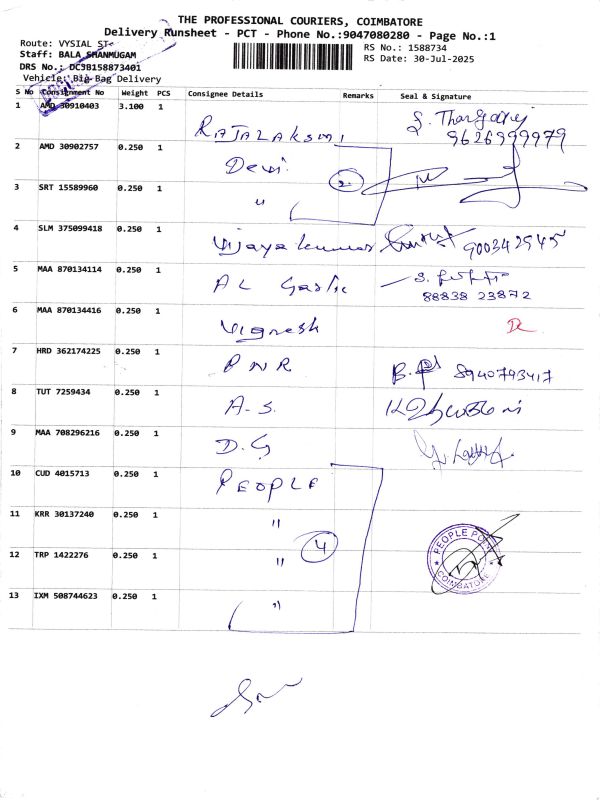 THE PROFESSIONAL COURIERS, COIMBATORE
Delivery Runsheet - PCT - Phone No.:9047080280 - Page No.:1
Route: VYSIAL ST- RS No.: 1588734
Staff: BALA SHANMUGAM RS Date: 30-Jul-2025
DRS No.: DC3B158873401
Vehicle: Big Bag Delivery
S No Consignment No Weight PCS Consignee Details Remarks Seal & Signature
1 AMD 30910403 3.100 1 RAJALAKSMI 9626999979
2 AMD 30902757 0.250 1 Devi
3 SRT 15589960 0.250 1 " 2
4 SLM 375099418 0.250 1 Vijayakumar 900342545
5 MAA 870134114 0.250 1 AL Garlic 88838 23872
6 MAA 870134416 0.250 1 Vignesh
7 HRD 362174225 0.250 1 PNR 8940793417
8 TUT 7259434 0.250 1 A.S.
9 MAA 708296216 0.250 1 D.G
10 CUD 4015713 0.250 1 PEOPLE
11 KRR 30137240 0.250 1 "
12 TRP 1422276 0.250 1 " 4 PEOPLE POINT COIMBATORE
13 IXM 508744623 0.250 1 "